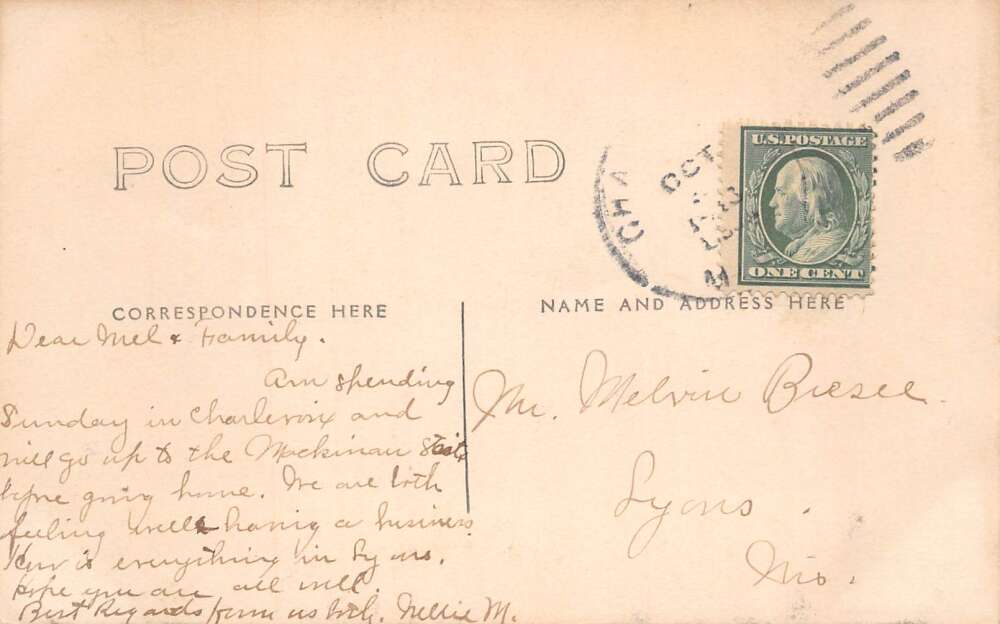 POST CARD
CHA
OCT
M
U.S. POSTAGE
ONE CENT
CORRESPONDENCE HERE
NAME AND ADDRESS HERE
Dear Mel & Family.
Am spending
Sunday in Charlevoix and
will go up to the Mackinaw
before going home. We are both
feeling well & having a business
How is everything in Lyons.
Hope you are all well.
Best Regards from us both. Nellie M.
Mr. Melvin
Lyons.